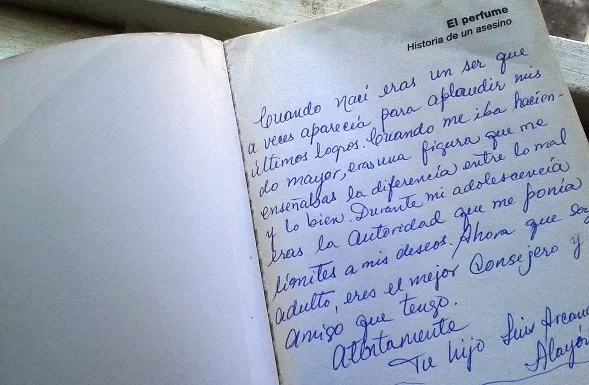 El perfume
Historia de un asesino
Cuando nací eras un ser que
a veces aparecía para aplaudir mis
últimos logros. Cuando me iba hacien-
do mayor, eras una figura que me
enseñabas la diferencia entre lo mal
y lo bien. Durante mi adolescencia
eras la autoridad que me ponía
límites a mis deseos. Ahora que soy
adulto, eres el mejor Consejero y
amigo que tengo.
Atentamente
Tu hijo Luis
Alayón